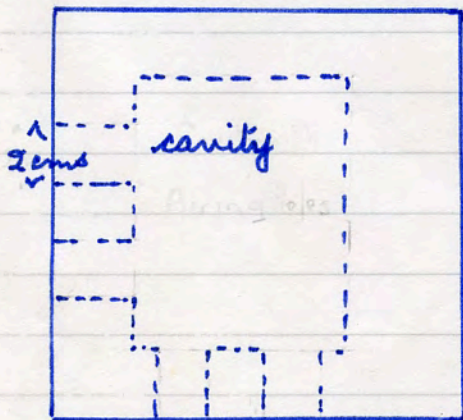 cavity
2cms